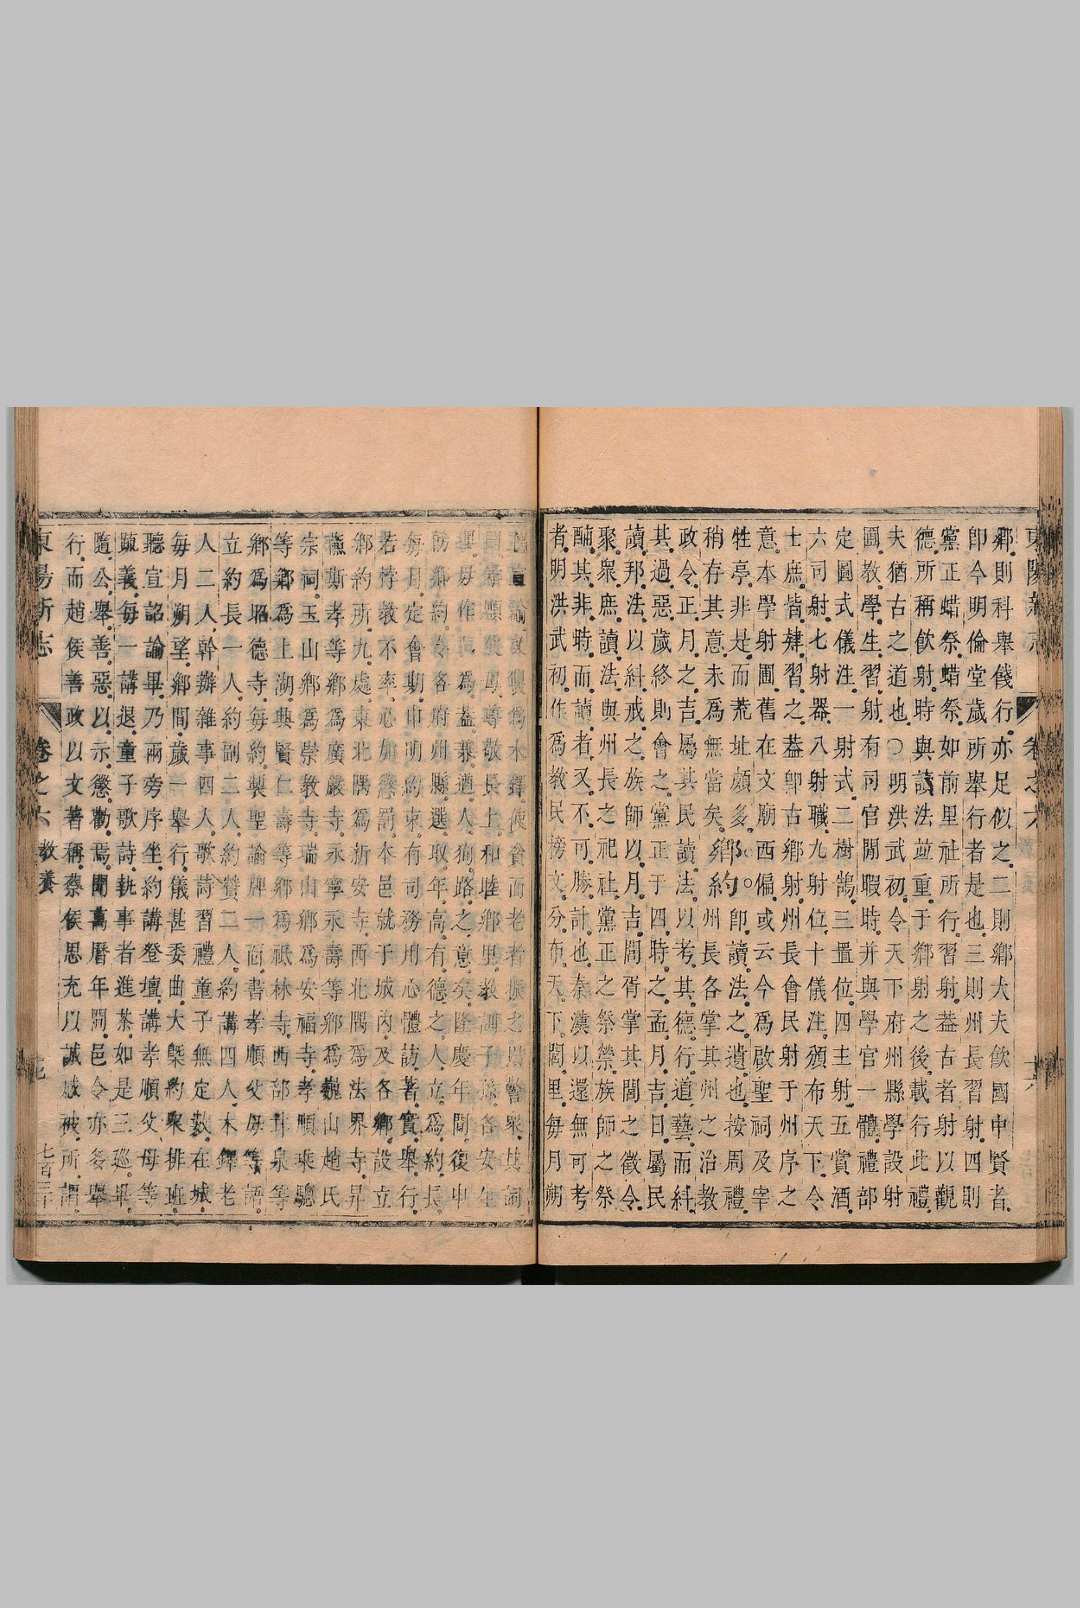 鄉則科舉餞行亦足似之二則鄉大夫飲國中賢者
即今明倫堂歲所舉行者是也三則州長習射四則
黨正蜡祭蜡祭如前里社所行習射葢古者射以觀
德所稱飲射時與讀法並重于鄉射之後載行此禮
夫猶古之道也〇明洪武初令天下府州縣學設射
圃教學生習射有司官閒暇時并與學官一體禮部
定圖式儀注一射式二樹鵠三置位四主射五賞酒
六司射七射器八射職九射位十儀注頒布天下令
士庶皆肄習之葢卽古鄉射州長會民射于州序之
意本學射圃舊在文廟西偏或云今爲啟聖祠及宰
牲亭非是而荒址頗多。鄉約。卽讀法之遺也按周禮
稍存其意未爲無當矣 州長各掌其州之治教
政令正月之吉屬其民讀法以考其德行道藝而糾
其過惡歲終則會之黨正于四時之孟月吉日屬民
讀邦法以糾戒之族師以月吉閭胥掌其閭之徵令
聚衆庶讀法與州長之祀社黨正之祭禜族師之祭
酺其非時而讀者又不可勝計也秦漢以還無可考
者明洪武初作爲教民榜文分布天下閭里每月朔
尊敬長上和睦鄉里教訓子孫各安生
毋作 爲葢最遒人狥路之意矣隆慶年間復申
飭鄉約令各府州縣選取年高有德之人立爲約長
每月定會期申明約束有司務用心體訪著實舉行
若督教不率心加懲罰本邑就于城內及各鄉設立
鄉約所九處東北隅爲新安寺西北隅爲法界寺昇
蘇斯孝等鄉爲廣嚴寺永寧永壽等鄉爲巍山趙氏
宗祠玉山鄉爲崇教寺瑞山鄉爲安福寺孝順乘驄
等鄉爲上湖興賢仁壽等鄉爲祇林寺西部甘泉等
鄉爲昭德寺每約製聖諭牌一面書孝順父母等語
立約長一人約副二人約贊二人約講四人木鐸老
人二人幹辦雜事四人歌詩習禮童子無定數在城
每月朔望鄉間歲一舉行儀甚委曲大槩約聚排班
聽宣詔諭畢乃兩旁序坐約講登壇講孝順父母等
䟽義每一講退童子歌詩執事者進茶如是三巡畢
隨公舉善惡以示懲勸焉聞萬曆年間邑令亦多舉
行而趙侯善政以文著稱蔡侯思充以誠感被所謂
東陽新志 卷之六 教養 十七 七百三十